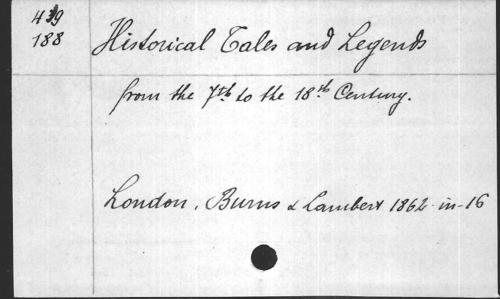 439
188
Historical Tales and Legends
from the 7th to the 18th Century.
London, Burns & Lambert 1862 in-16